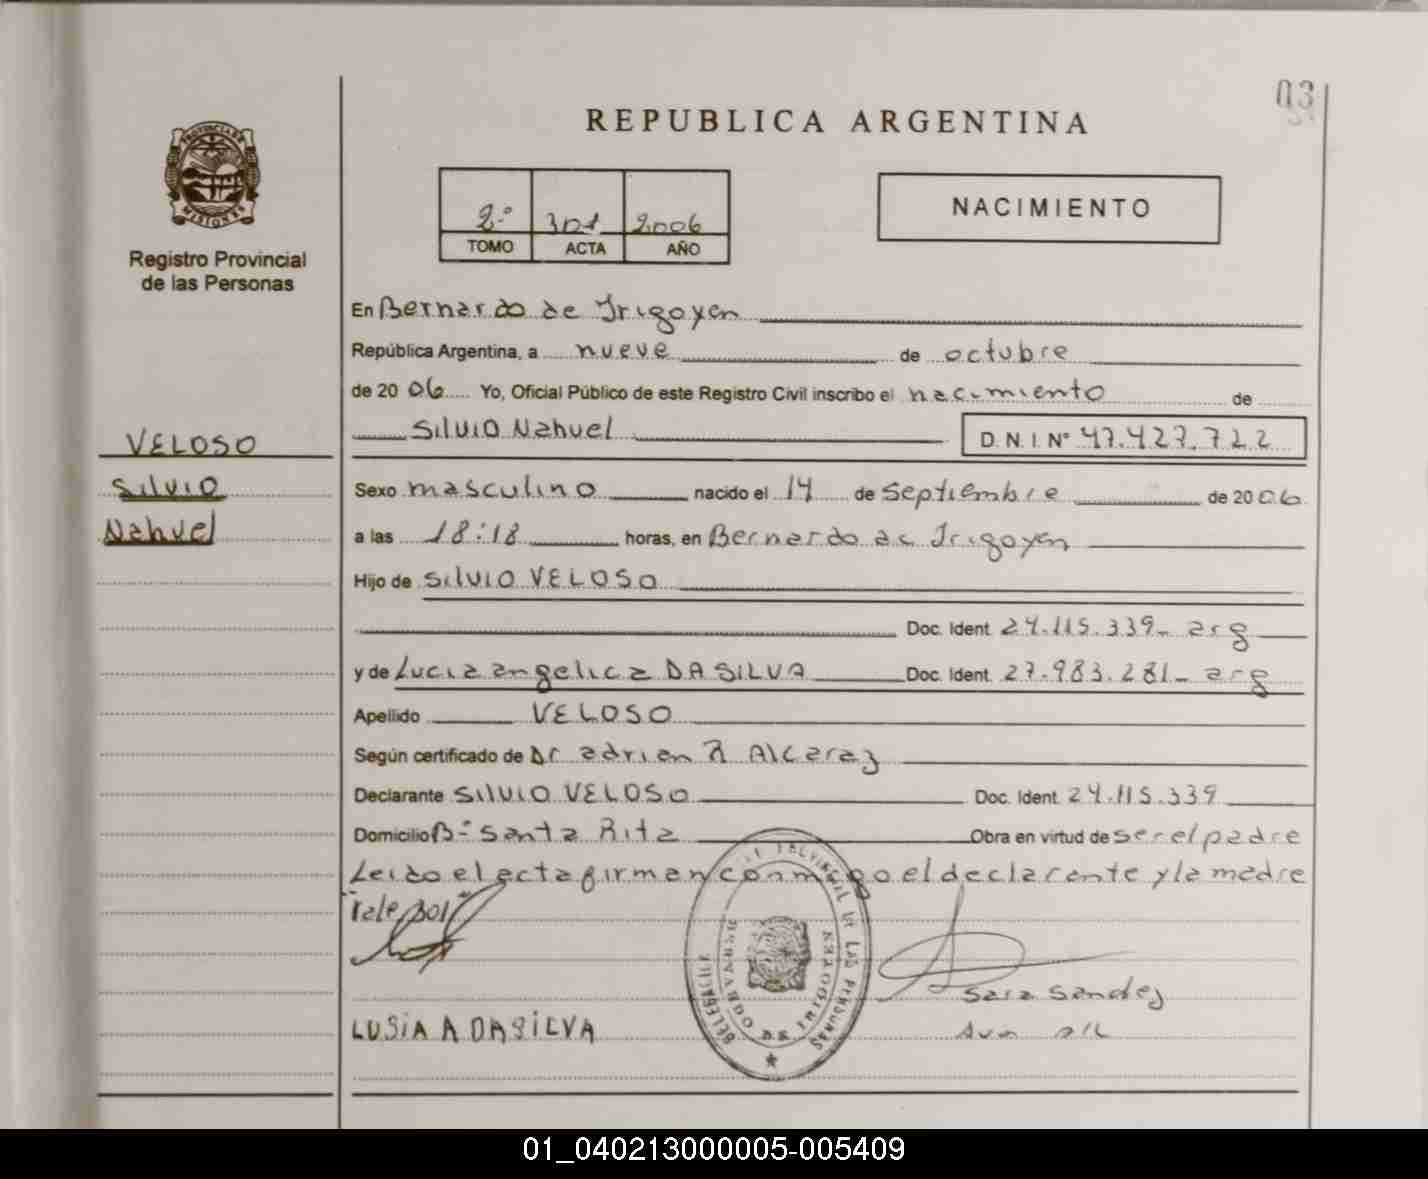 03
REPUBLICA ARGENTINA
PROVINCIA DE MISIONES
Registro Provincial
de las Personas
2º 301 2006
TOMO ACTA AÑO
NACIMIENTO
En Bernardo de Irigoyen
República Argentina, a nueve de octubre
de 20 06 Yo, Oficial Público de este Registro Civil inscribo el nacimiento de
Silvio Nahuel D. N. I. Nº 47.427.722
VELOSO
Silvio
Nahuel
Sexo masculino nacido el 14 de Septiembre de 2006
a las 18:18 horas, en Bernardo de Irigoyen
Hijo de Silvio VELOSO
Doc. Ident. 24.115.339- arg
y de Lucia angelica DA SILVA Doc. Ident. 27.983.281- arg
Apellido VELOSO
Según certificado de Dr adrian R Alcaraz
Declarante SILVIO VELOSO Doc. Ident. 24.115.339
Domicilio Bº Santa Rita Obra en virtud de ser el padre
Leido el acta firman conmigo el declarante y la madre
"Vale 301"
Sara Sandez
LUSiA A DASiLVA
DE LAS PERSONAS
BERNARDO DE IRIGOYEN
01_040213000005-005409